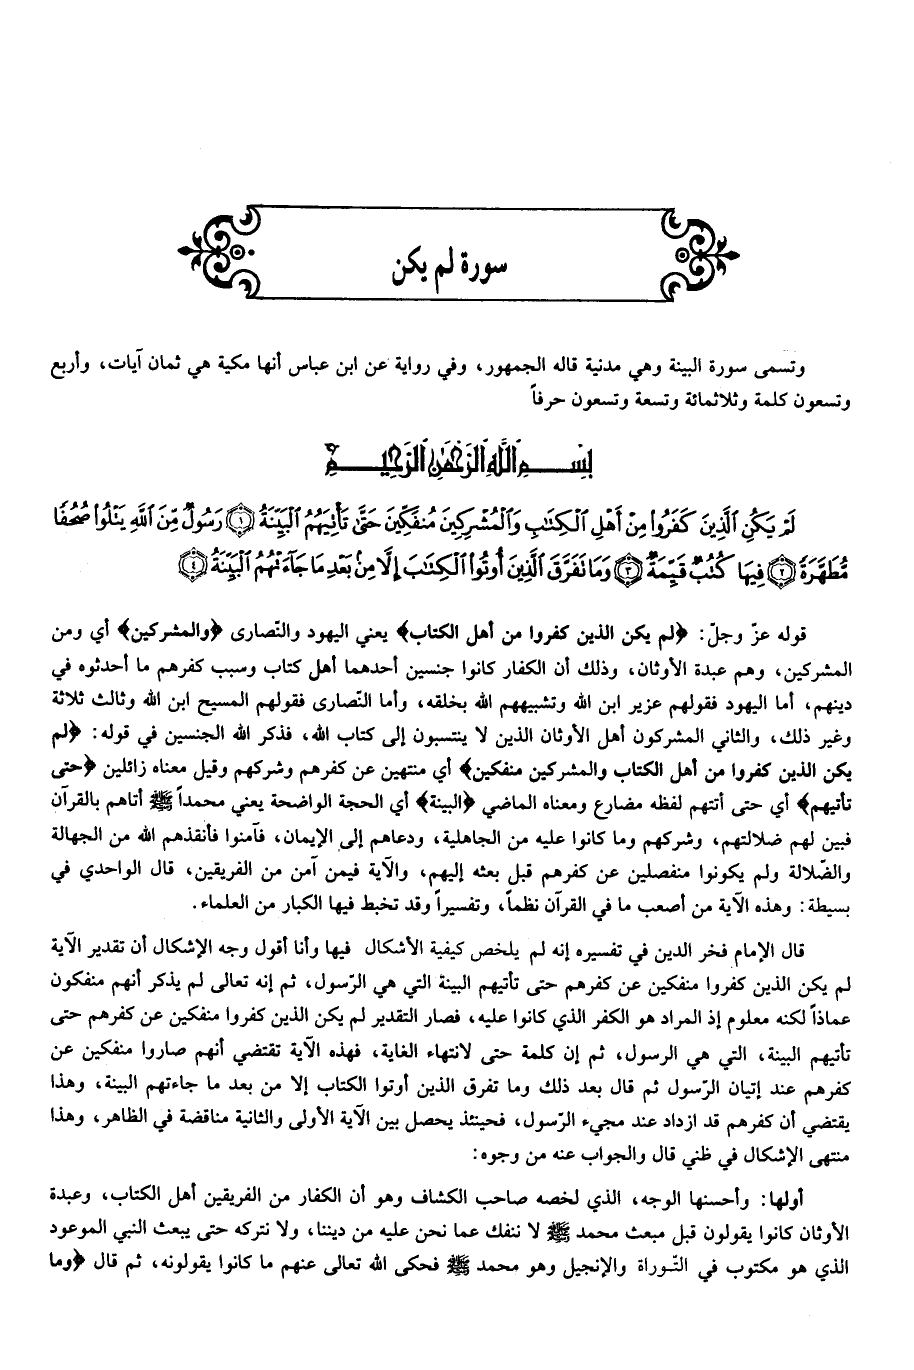 سورة لم يكن
وتسمى سورة البينة وهي مدنية قاله الجمهور، وفي رواية عن ابن عباس أنها مكية هي ثمان آيات، وأربع
وتسعون كلمة وثلاثمائة وتسعة وتسعون حرفاً
بِسْمِ اللَّهِ الرَّحْمَٰنِ الرَّحِيمِ
لَمْ يَكُنِ الَّذِينَ كَفَرُوا مِنْ أَهْلِ الْكِتَابِ وَالْمُشْرِكِينَ مُنفَكِّينَ حَتَّىٰ تَأْتِيَهُمُ الْبَيِّنَةُ ﴿١﴾ رَسُولٌ مِّنَ اللَّهِ يَتْلُوا صُحُفًا
مُّطَهَّرَةً ﴿٢﴾ فِيهَا كُتُبٌ قَيِّمَةٌ ﴿٣﴾ وَمَا تَفَرَّقَ الَّذِينَ أُوتُوا الْكِتَابَ إِلَّا مِنْ بَعْدِ مَا جَاءَتْهُمُ الْبَيِّنَةُ ﴿٤﴾
قوله عزّ وجلّ: ﴿لم يكن الذين كفروا من أهل الكتاب﴾ يعني اليهود والنّصارى ﴿والمشركين﴾ أي ومن
المشركين، وهم عبدة الأوثان، وذلك أن الكفار كانوا جنسين أحدهما أهل كتاب وسبب كفرهم ما أحدثوه في
دينهم، أما اليهود فقولهم عزير ابن الله وتشبيههم الله بخلقه، وأما النّصارى فقولهم المسيح ابن الله وثالث ثلاثة
وغير ذلك، والثاني المشركون أهل الأوثان الذين لا ينتسبون إلى كتاب الله، فذكر الله الجنسين في قوله: ﴿لم
يكن الذين كفروا من أهل الكتاب والمشركين منفكين﴾ أي منتهين عن كفرهم وشركهم وقيل معناه زائلين ﴿حتى
تأتيهم﴾ أي حتى أتتهم لفظه مضارع ومعناه الماضي ﴿البينة﴾ أي الحجة الواضحة يعني محمداً ﷺ أتاهم بالقرآن
فبين لهم ضلالتهم، وشركهم وما كانوا عليه من الجاهلية، ودعاهم إلى الإيمان، فآمنوا فأنقذهم الله من الجهالة
والضّلالة ولم يكونوا منفصلين عن كفرهم قبل بعثه إليهم، والآية فيمن آمن من الفريقين، قال الواحدي في
بسيطة: وهذه الآية من أصعب ما في القرآن نظماً، وتفسيراً وقد تخبط فيها الكبار من العلماء.
قال الإمام فخر الدين في تفسيره إنه لم يلخص كيفية الأشكال فيها وأنا أقول وجه الإشكال أن تقدير الآية
لم يكن الذين كفروا منفكين عن كفرهم حتى تأتيهم البينة التي هي الرّسول، ثم إنه تعالى لم يذكر أنهم منفكون
عماذاً لكنه معلوم إذ المراد هو الكفر الذي كانوا عليه، فصار التقدير لم يكن الذين كفروا منفكين عن كفرهم حتى
تأتيهم البينة، التي هي الرسول، ثم إن كلمة حتى لانتهاء الغاية، فهذه الآية تقتضي أنهم صاروا منفكين عن
كفرهم عند إتيان الرّسول ثم قال بعد ذلك وما تفرق الذين أوتوا الكتاب إلا من بعد ما جاءتهم البينة، وهذا
يقتضي أن كفرهم قد ازداد عند مجيء الرّسول، فحينئذ يحصل بين الآية الأولى والثانية مناقضة في الظاهر، وهذا
منتهى الإشكال في ظني قال والجواب عنه من وجوه:
أولها: وأحسنها الوجه، الذي لخصه صاحب الكشاف وهو أن الكفار من الفريقين أهل الكتاب، وعبدة
الأوثان كانوا يقولون قبل مبعث محمد ﷺ لا ننفك عما نحن عليه من ديننا، ولا نتركه حتى يبعث النبي الموعود
الذي هو مكتوب في التّوراة والإنجيل وهو محمد ﷺ فحكى الله تعالى عنهم ما كانوا يقولونه، ثم قال ﴿وما